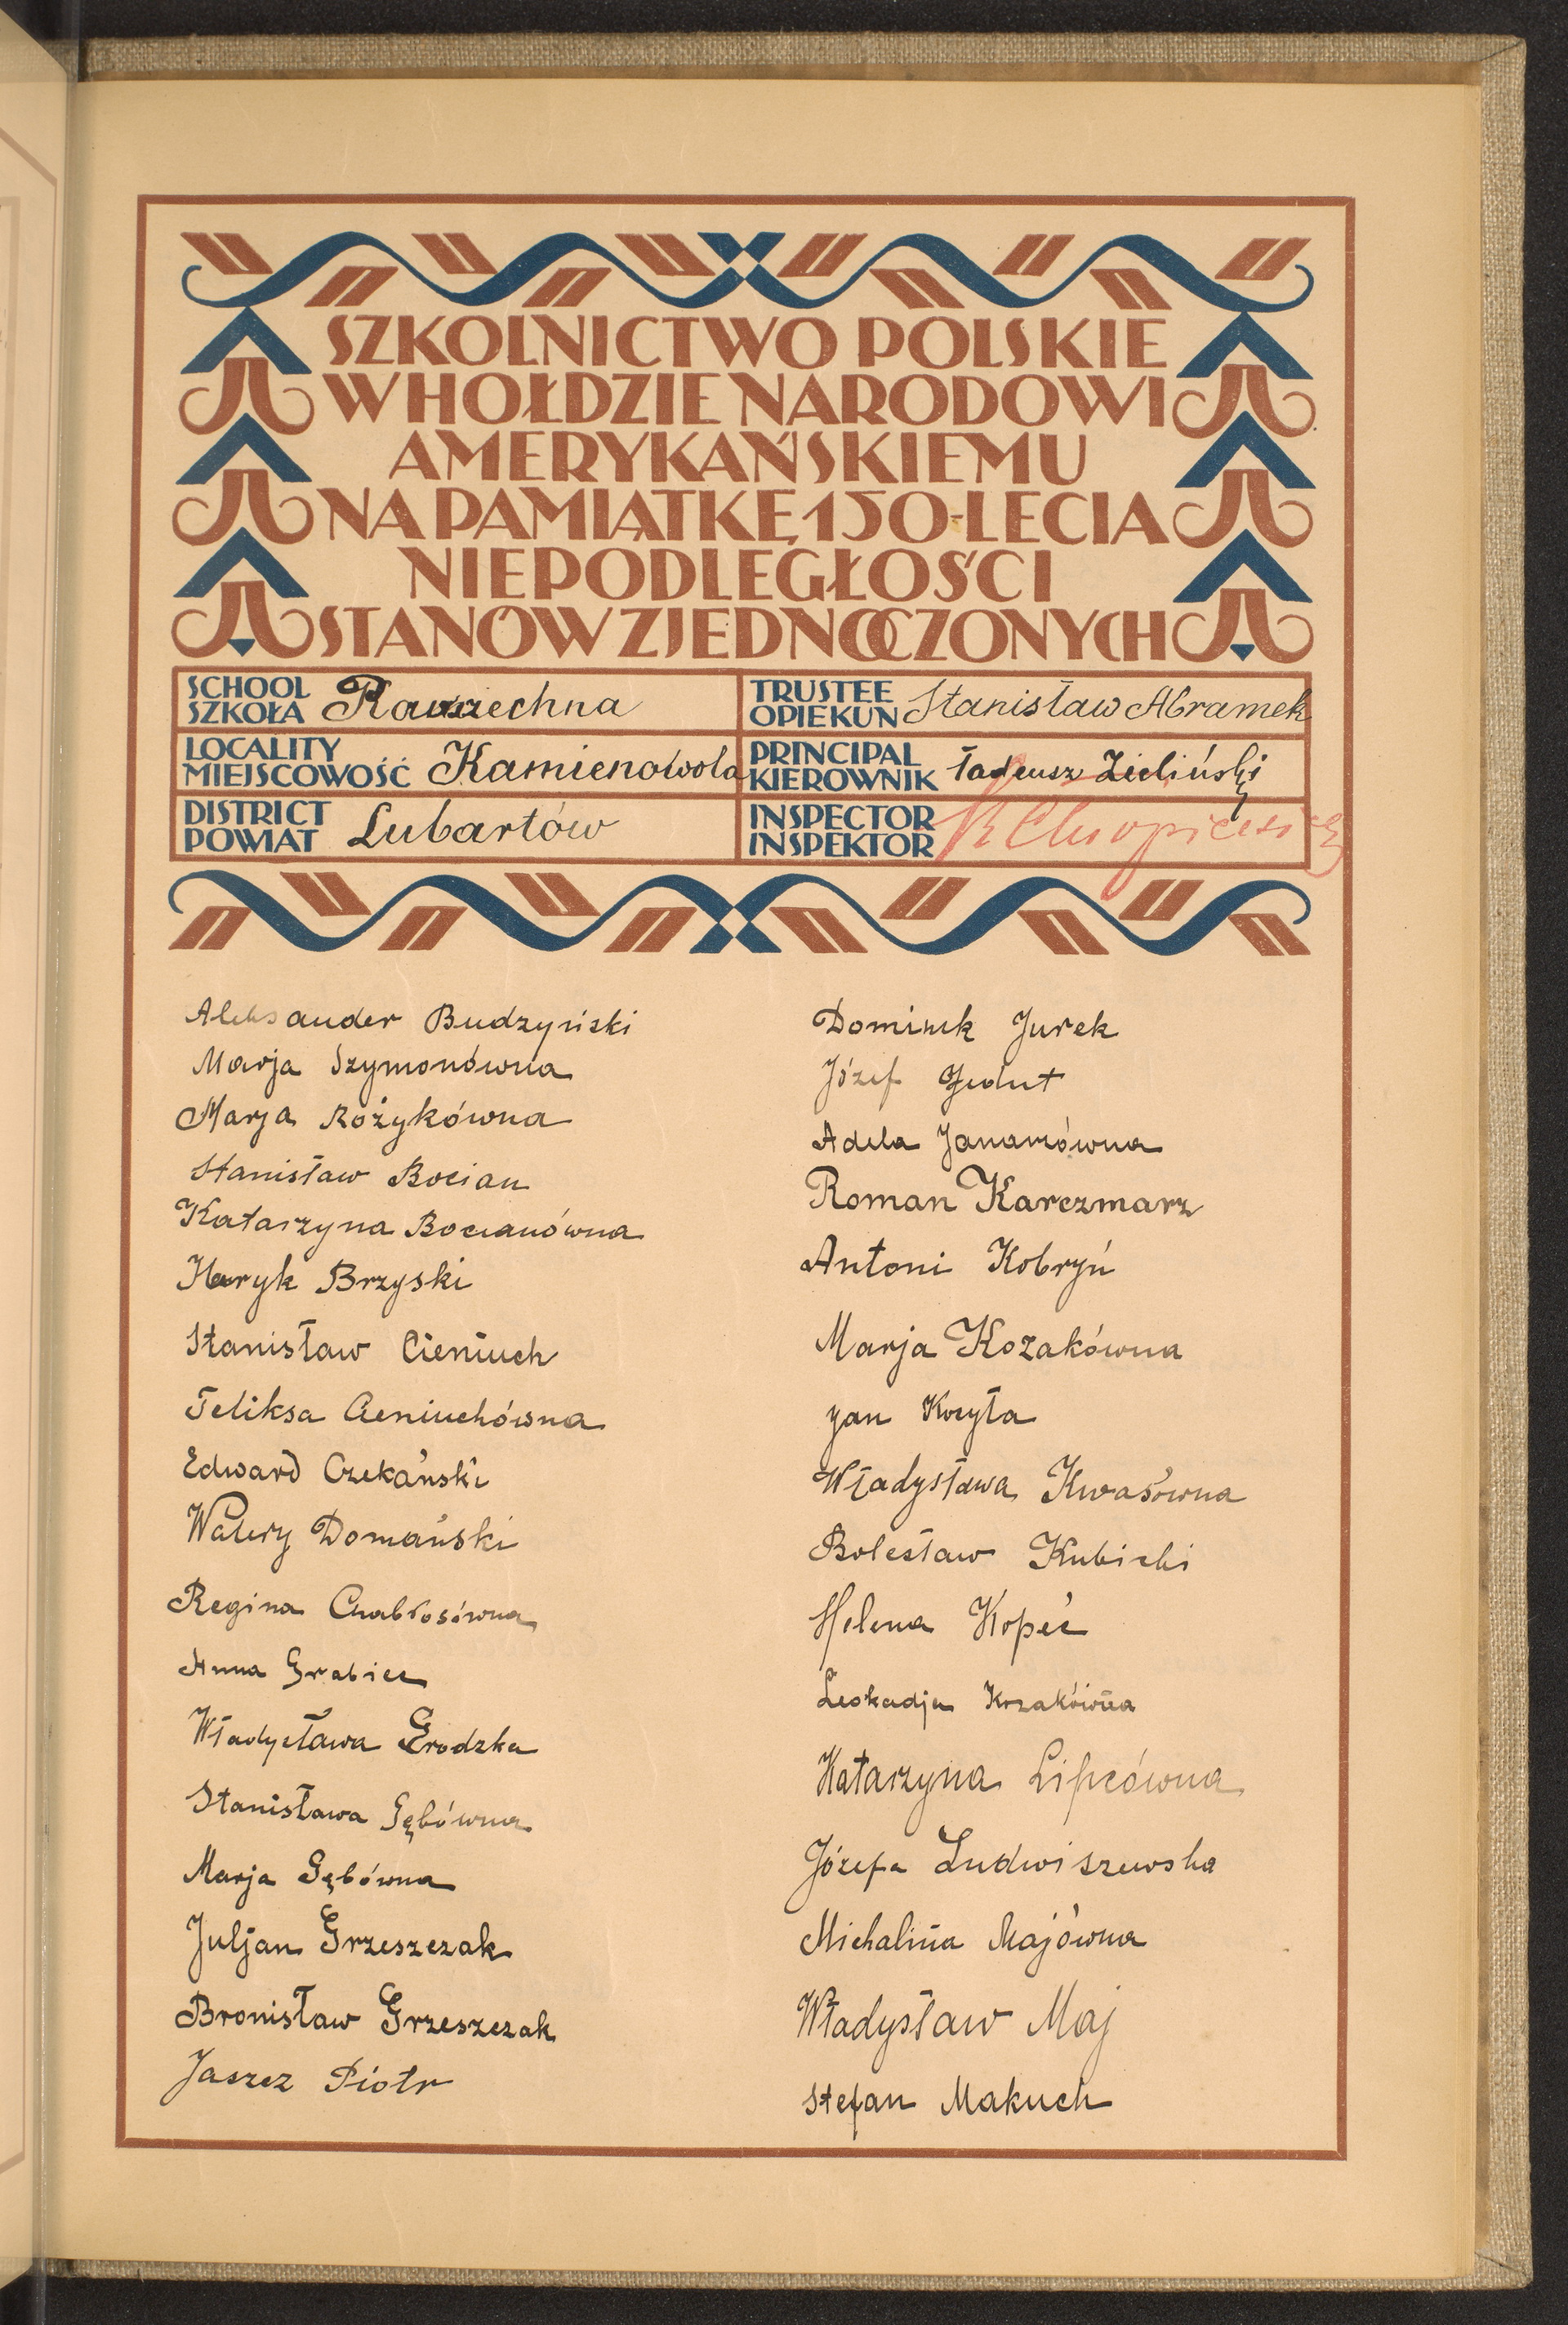 SZKOLNICTWO POLSKIE
W HOŁDZIE NARODOWI
AMERYKAŃSKIEMU
NA PAMIĄTKĘ 150-LECIA
NIEPODLEGŁOŚCI
STANÓW ZJEDNOCZONYCH
SCHOOL
SZKOŁA
LOCALITY
MIEJSCOWOŚĆ Kamienowola
DISTRICT
POWIAT Lubartów
TRUSTEE
OPIEKUN Stanisław Abramek
PRINCIPAL
KIEROWNIK Tadeusz Zieliński
INSPECTOR
INSPEKTOR
Aleksander Budzyński
Marja Szymonówna
Marja Rożykówna
Stanisław Bocian
Katarzyna Bocianówna
Brzyski
Stanisław Cieniuch
Feliksa Cieniuchówna
Edward Czekański
Walery Domański
Regina
Anna Grabiec
Władysława Grodzka
Stanisława Gębówna
Marja Gębówna
Juljan Grzeszczak
Bronisław Grzeszczak
Jaszcz Piotr
Dominik Jurek
Józef Jedut
Adela
Roman Karczmarz
Antoni Kobryń
Marja Kozakówna
Jan Koryta
Władysława Kwasówna
Bolesław Kubicki
Helena Kopeć
Leokadja Kozakówna
Katarzyna Lipcówna
Józefa Ludwiszewska
Michalina Majówna
Władysław Maj
Stefan Makuch